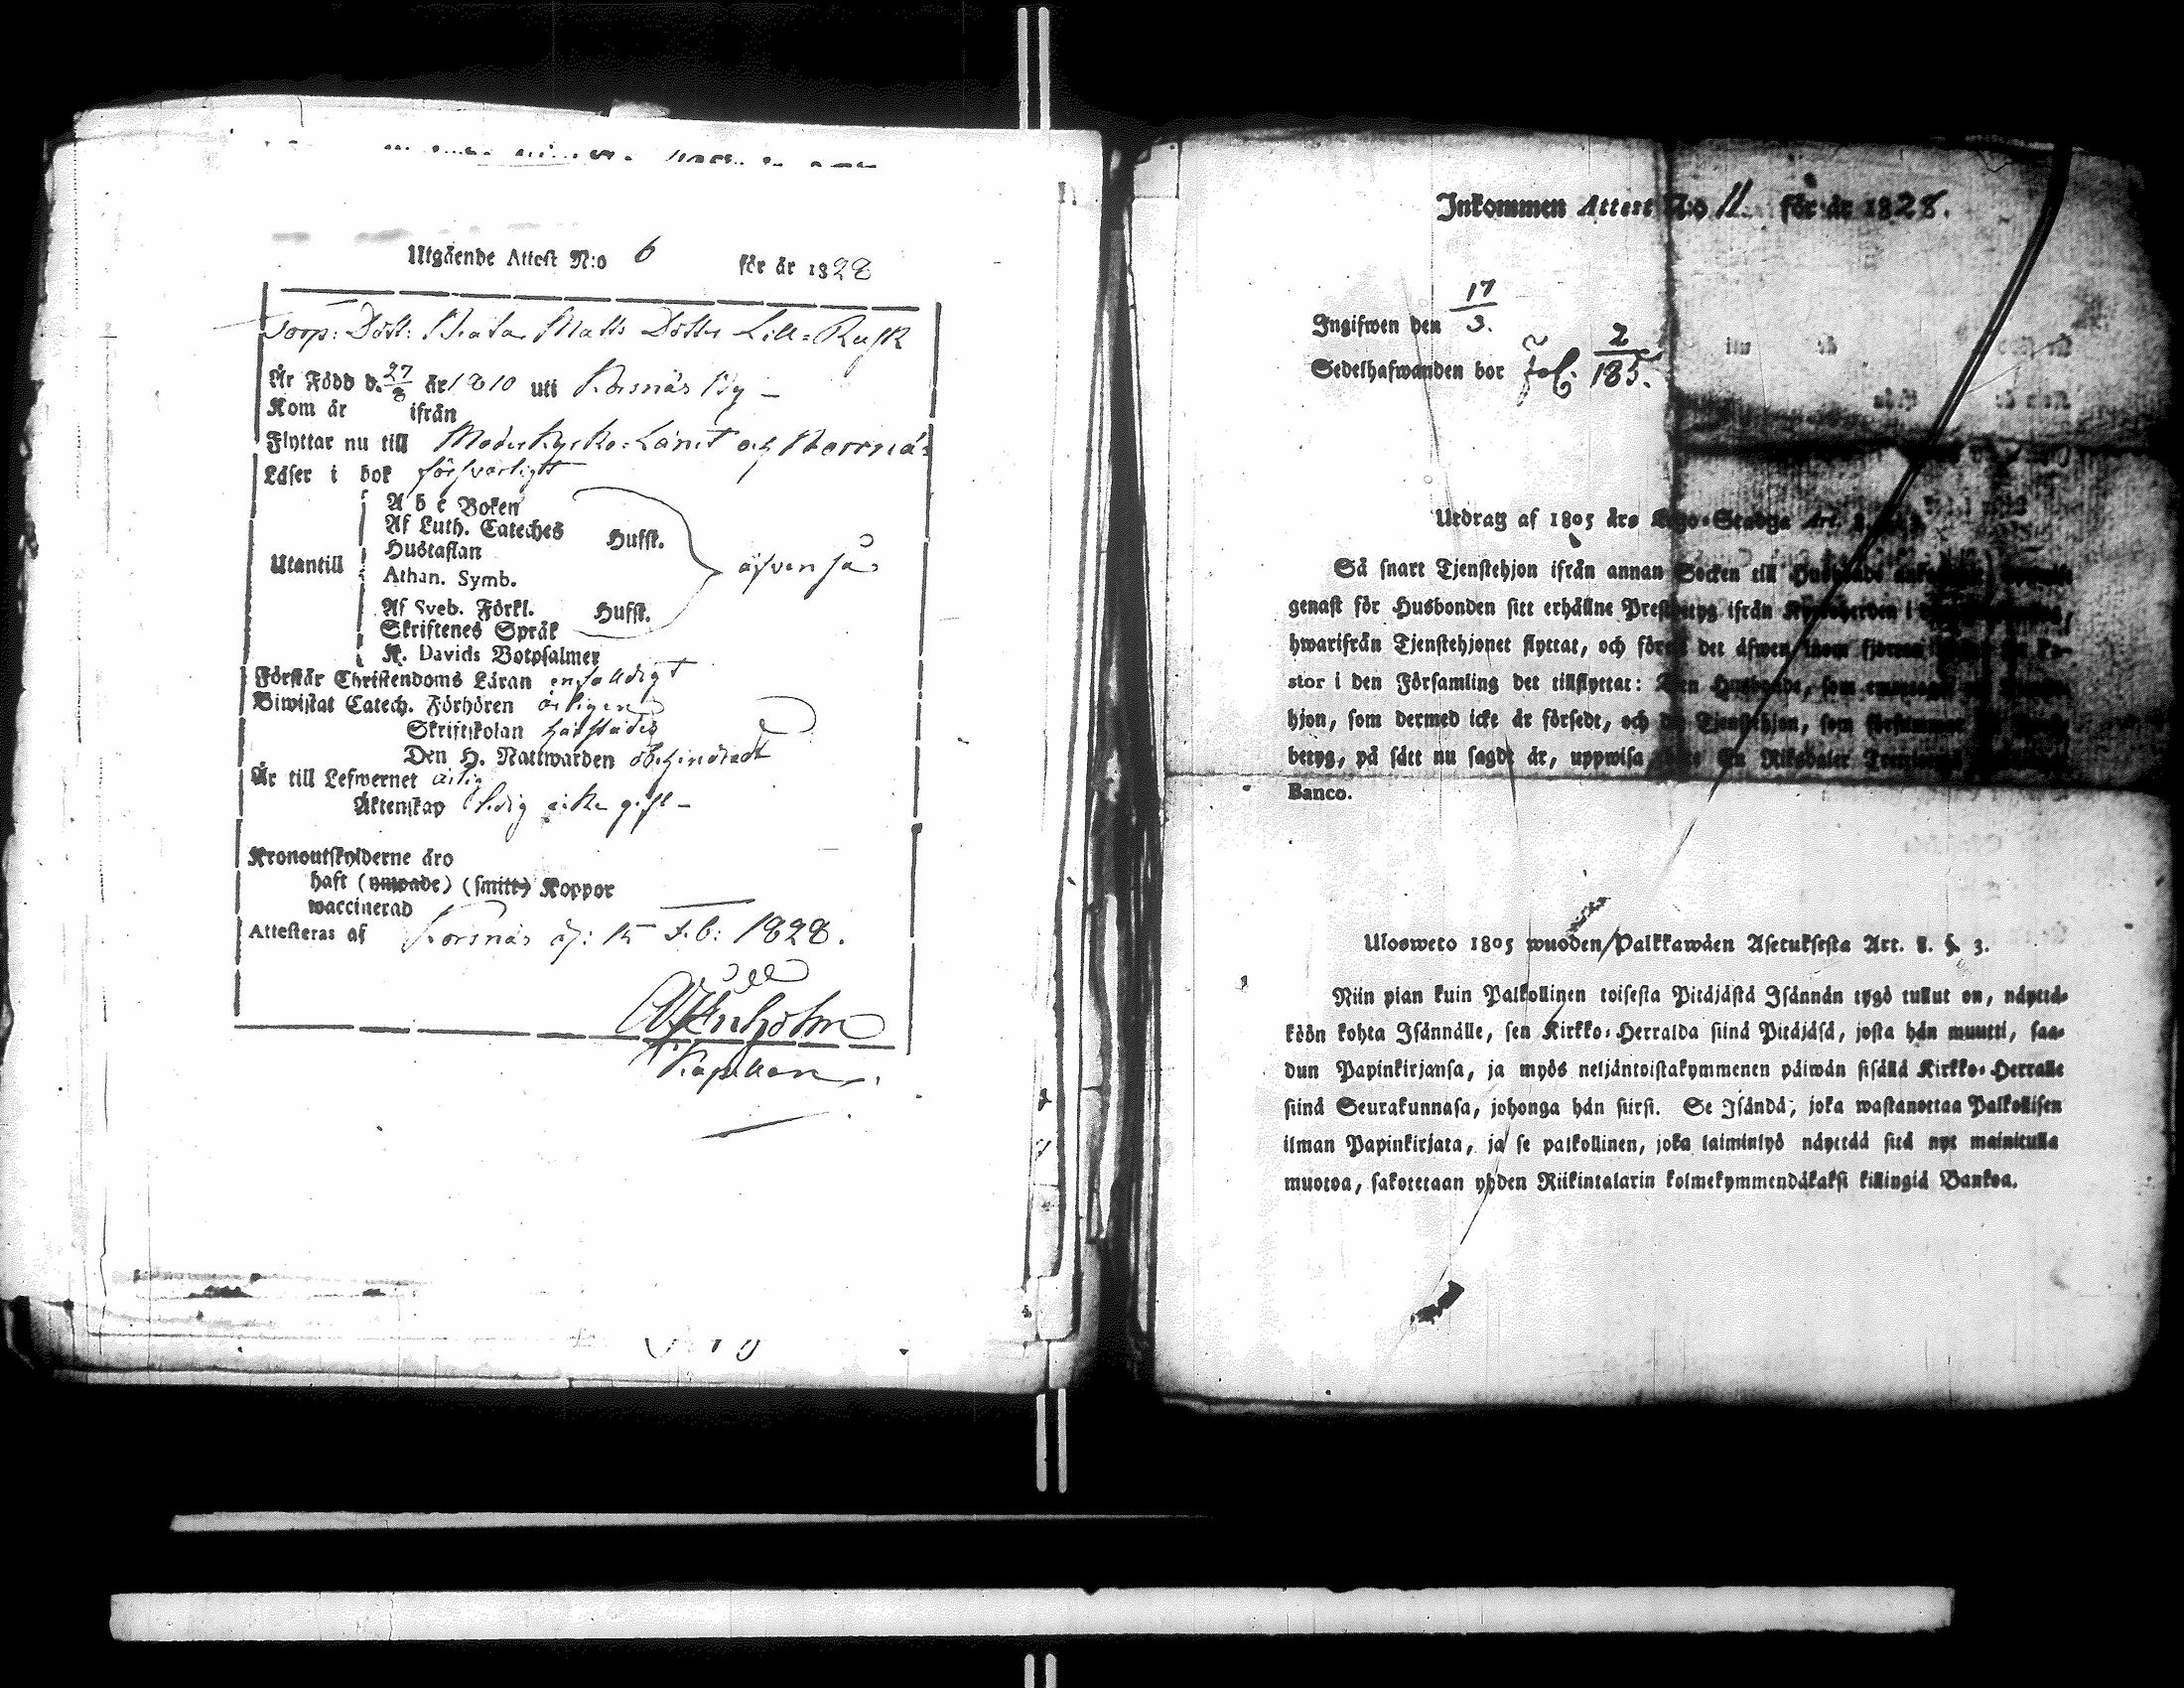 Utgående Attest N:o 6 för år 1828
Torp: Dott: Beata Matts Dotter Lill=Rusk
Är Född d. 27/8 år 1810 uti Korsnäs By –
Kom år ifrån
Flyttar nu till Moderkyrko=Länet och
Läser i bok försvarligt
A b c Boken
Af Luth. Cateches Hufst.
Hustaflan
Utantill äfven så
Athan. Symb.
Af Sveb. Förkl. Hufst.
Skriftenes Språk
K. Davids Botpsalmer
Förstår Christendoms Läran enfaldigt
Biwistat Catech. Förhören årligen
Skriftskolan härstädes
Den H. Nattwarden obehindradt
Är till Lefwernet ärlig
Äktenskap ledig icke gift –
Kronoutskylderne äro
haft (ympade) (smitt) Koppor
waccinerad
Attesteras af Korsnäs d: 15 Feb: 1828.
Kapellan
Inkommen Attest N:o 11. för år 1828.
Ingifwen den 17/3.
Sedelhafwanden bor Fol: 2/185.
Utdrag af 1805 års Lego-Stadga Art.
Så snart Tjenstehjon ifrån annan Socken till Husbonde
genast för Husbonden sitt erhållne Prestbetyg ifrån Kyrkoherden i
hwarifrån Tjenstehjonet flyttat, och förete det äfwen inom fjorton
stor i den Församling det tillflyttat: Den Husbonde, som
hjon, som dermed icke är försedt, och det Tjenstehjon, som försummar
betyg, på sätt nu sagdt är, uppwisa, En Riksdaler
Banco.
Ulosweto 1805 wuoden Palkkawäen Asetuksesta Art. 8. §. 3.
Niin pian kuin Palkollinen toisesta Pitäjästä Isännän tygö tullut on, näyttä-
köön kohta Isännälle, sen Kirkko-Herralda siinä Pitäjäsä, josta hän muutti, saa-
dun Papinkirjansa, ja myös neljäntoistakymmenen päiwän sisällä Kirkko-Herralle
siinä Seurakunnasa, johonga hän siirsi. Se Isändä, joka wastanottaa Palkollisen
ilman Papinkirjata, ja se palkollinen, joka laiminlyö näyttää sitä nyt mainitulla
muotoa, sakotetaan yhden Riikintalarin kolmekymmendäkaksi killingiä Bankoa.